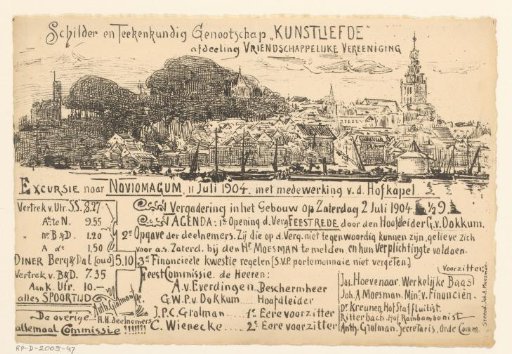 Schilder en Teekenkundig Genootschap „KUNSTLIEFDE"
afdeeling VRIENDSCHAPPELIJKE VEREENIGING
EXCURSIE naar NOVIOMAGUM, 11 Juli 1904. met medewerking v. d. Hofkapel
Vertrek v. Utr. SS. 8.27
A. te N. 9.55
B&D 1.20
A 1.50
DINER Berg & Dal (oud) 5.10
Vertrek v. B&D. 7.35
Aank Utr. 10.-
alles SPOORTIJD
De overige
allemaal Commissie !!!!!!!
Vergadering in het Gebouw op Zaterdag 2 Juli 1904 ½9
AGENDA: 1e Opening d. Verg FEESTREDE door den Hoofdleider G.v. Dokkum.
2e Opgave der deelnemers. Zij die op d. Verg. niet tegenwoordig kunnen zijn, gelieve zich
voor a.s. Zaterd. bij den Hr MOESMAN te melden en hun verplichting te voldoen.
3e Financieele kwestie regelen (S.V.P. portemonnaie niet vergeten)
Feest Commissie. de Heeren:
A. v. Everdingen Beschermheer
G.W.P. v. Dokkum Hoofdleider
J.P.C. Grolman 1e Eere voorzitter
C. Wienecke 2e Eere voorzitter
Voorzitter
Jos. Hoevenaar Werkelijke Baas
Joh. A. Moesman. Min. v. Financiën.
Dr Kreunen, Hof Staffluitist.
Ritterbach Hof Rainbombonist
Anth. Grolman, Secretaris, Orde Comm.
Steendr. Joh. A. Moesman
RP-D-2009-47